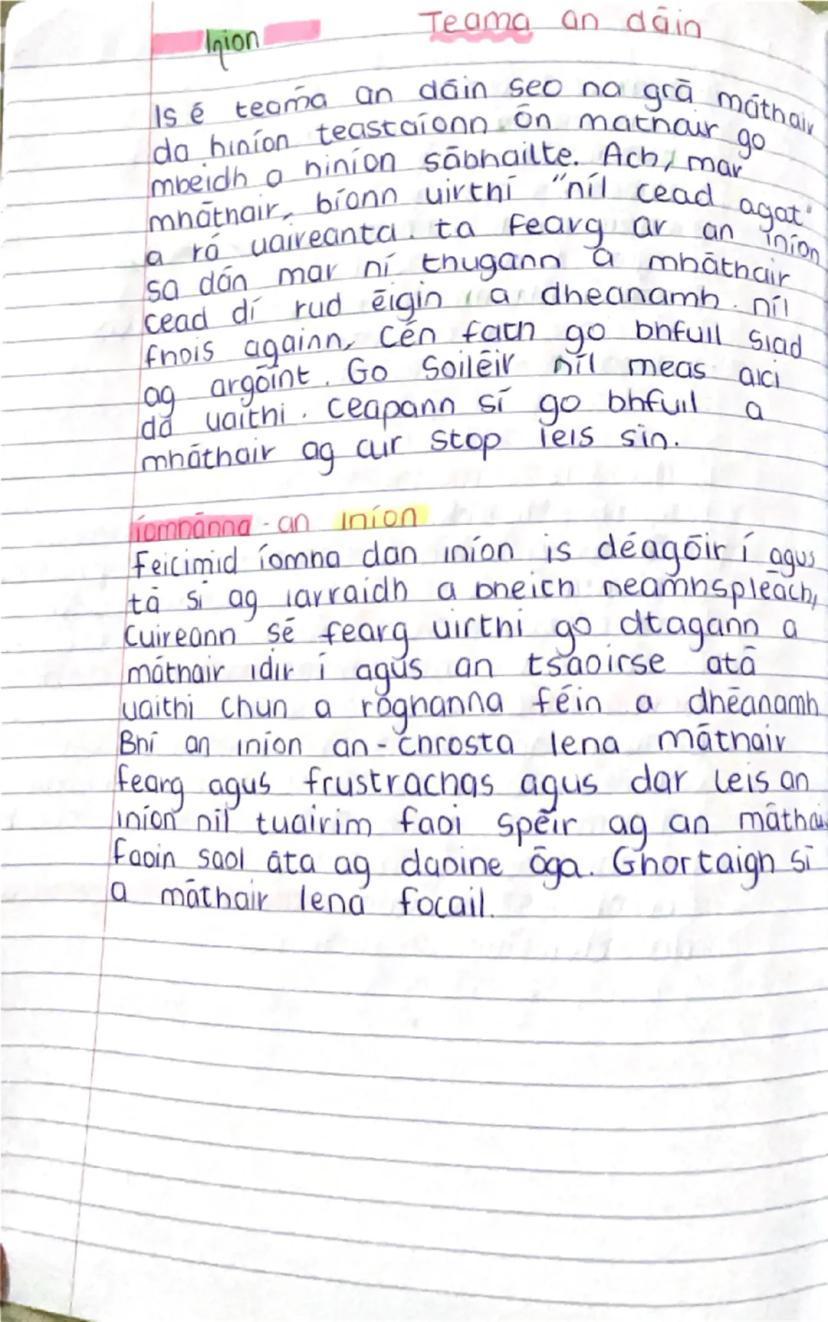 Inion
Teama an dáin
Is é teama an dáin seo na grá máthair
da hiníon teastaíonn ón mathair go
mbeidh a hiníon sábhailte. Ach, mar
mháthair, bíonn uirthí "níl cead agat"
a rá uaireanta. ta fearg ar an iníon
sa dán mar ní thugann a mháthair
cead dí rud éigin a dheanamh. níl
fhois againn, Cén fath go bhfuil siad
ag argóint. Go Soiléir níl meas aici
dá uaithi. Ceapann sí go bhfuil a
mháthair ag cur stop leis sin.
íomhánna - an iníon
Feicimid íomha dan iníon is déagóir í agus
tá sí ag iarraidh a bheith neamhspleách,
Cuireann sé fearg uirthi go dtagann a
máthair idir í agus an tsaoirse atá
uaithi chun a róghanna féin a dhéanamh
Bhí an inion an-chrosta lena máthair
fearg agus frustrachas agus dar leis an
iníon níl tuairim faoi spéir ag an máthai
faoin saol áta ag daoine óga. Ghortaigh sí
a máthair lena focail.